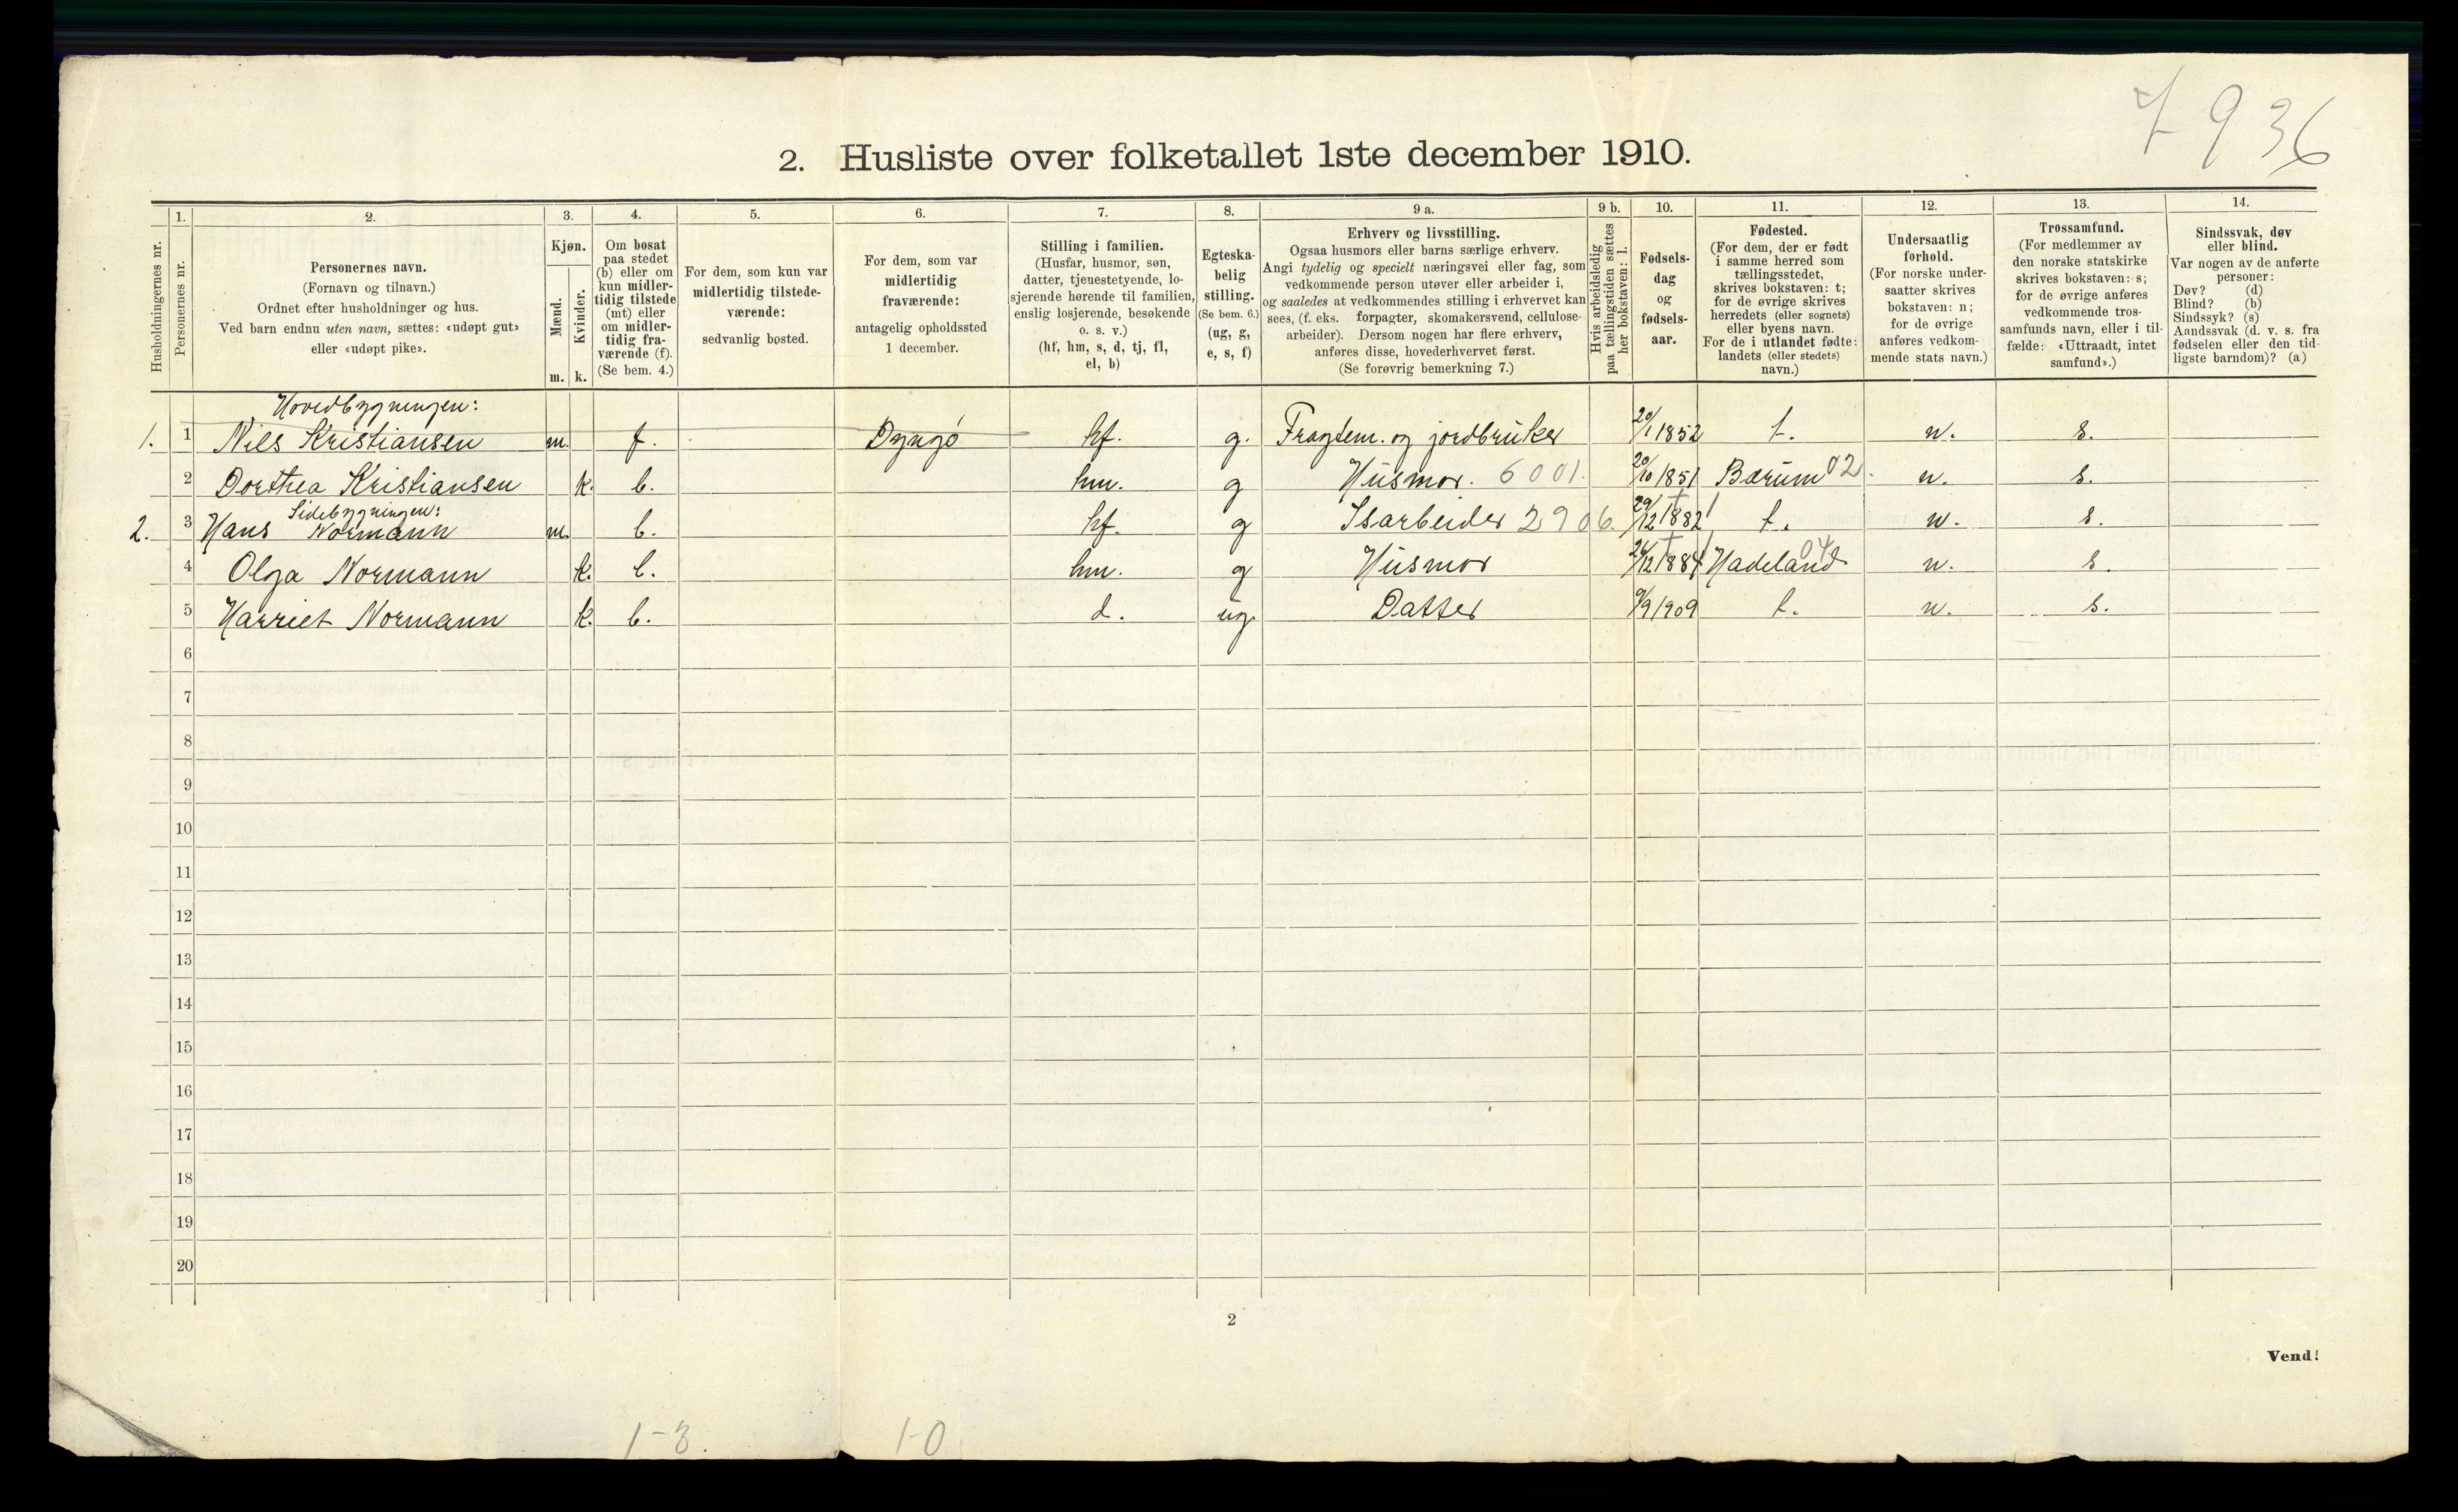 7 936
2. Husliste over folketallet 1ste december 1910.
Husholdningernes nr.
1.
Personernes nr.
2.
Personernes navn.
(Fornavn og tilnavn.)
Ordnet efter husholdninger og hus.
Ved barn endnu uten navn, sættes: «udøpt gut»
eller «udøpt pike».
3.
Kjøn.
Mænd.
Kvinder.
m. k.
4.
Om bosat
paa stedet
(b) eller om
kun midler-
tidig tilstede
(mt) eller
om midler-
tidig fra-
værende (f).
(Se bem. 4.)
5.
For dem, som kun var
midlertidig tilstede-
værende:
sedvanlig bosted.
6.
For dem, som var
midlertidig
fraværende:
antagelig opholdssted
1 december.
7.
Stilling i familien.
(Husfar, husmor, søn,
datter, tjenestetyende, lo-
sjerende hørende til familien,
enslig losjerende, besøkende
o. s. v.)
(hf, hm, s, d, tj, fl,
el, b)
8.
Egteska-
belig
stilling.
(Se bem. 6.)
(ug, g,
e, s, f)
9 a.
Erhverv og livsstilling.
Ogsaa husmors eller barns særlige erhverv.
Angi tydelig og specielt næringsvei eller fag, som
vedkommende person utøver eller arbeider i,
og saaledes at vedkommendes stilling i erhvervet kan
sees, (f. eks. forpagter, skomakersvend, cellulose-
arbeider). Dersom nogen har flere erhverv,
anføres disse, hovederhvervet først.
(Se forøvrig bemerkning 7.)
9 b.
Hvis arbeidsledig
paa tællingstiden sættes
her bokstaven: l.
10.
Fødsels-
dag
og
fødsels-
aar.
11.
Fødested.
(For dem, der er født
i samme herred som
tællingsstedet,
skrives bokstaven: t;
for de øvrige skrives
herredets (eller sognets)
eller byens navn.
For de i utlandet fødte:
landets (eller stedets)
navn.)
12.
Undersaatlig
forhold.
(For norske under-
saatter skrives
bokstaven: n;
for de øvrige
anføres vedkom-
mende stats navn.)
13.
Trossamfund.
(For medlemmer av
den norske statskirke
skrives bokstaven: s;
for de øvrige anføres
vedkommende tros-
samfunds navn, eller i til-
fælde: «Uttraadt, intet
samfund».)
14.
Sindssvak, døv
eller blind.
Var nogen av de anførte
personer:
Døv? (d)
Blind? (b)
Sindssyk? (s)
Aandssvak (d. v. s. fra
fødselen eller den tid-
ligste barndom)? (a)
Hovedbygningen:
1. 1 Nils Kristiansen m. f. Dyngö hf. g. Fragtem. og jordbruker 20/1 1852 t. n. s.
2 Dorthea Kristiansen k. b. hm. g Husmor. 6001. 20/10 1851 Bærum 02 n. s.
Sidebygningen:
2. 3 Hans Normann m. b. hf. g Isarbeider 2906. 29/12 1882 t. n. s.
4 Olga Normann k. b. hm. g Husmor 26/12 1884 Hadeland 04 n. s.
5 Harriet Normann k. b. d. ug. Datter 9/9 1909 t. n. s.
6
7
8
9
10
11
12
13
14
15
16
17
18
19
20
2
Vend!
1-3. 1-0